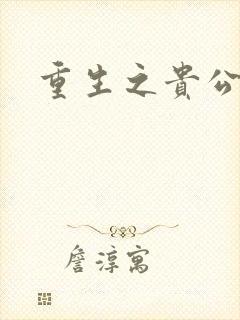 重生之貴公
詹淳寓